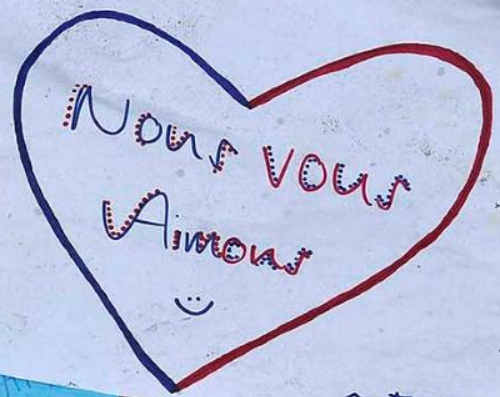 Nous vous
Aimons